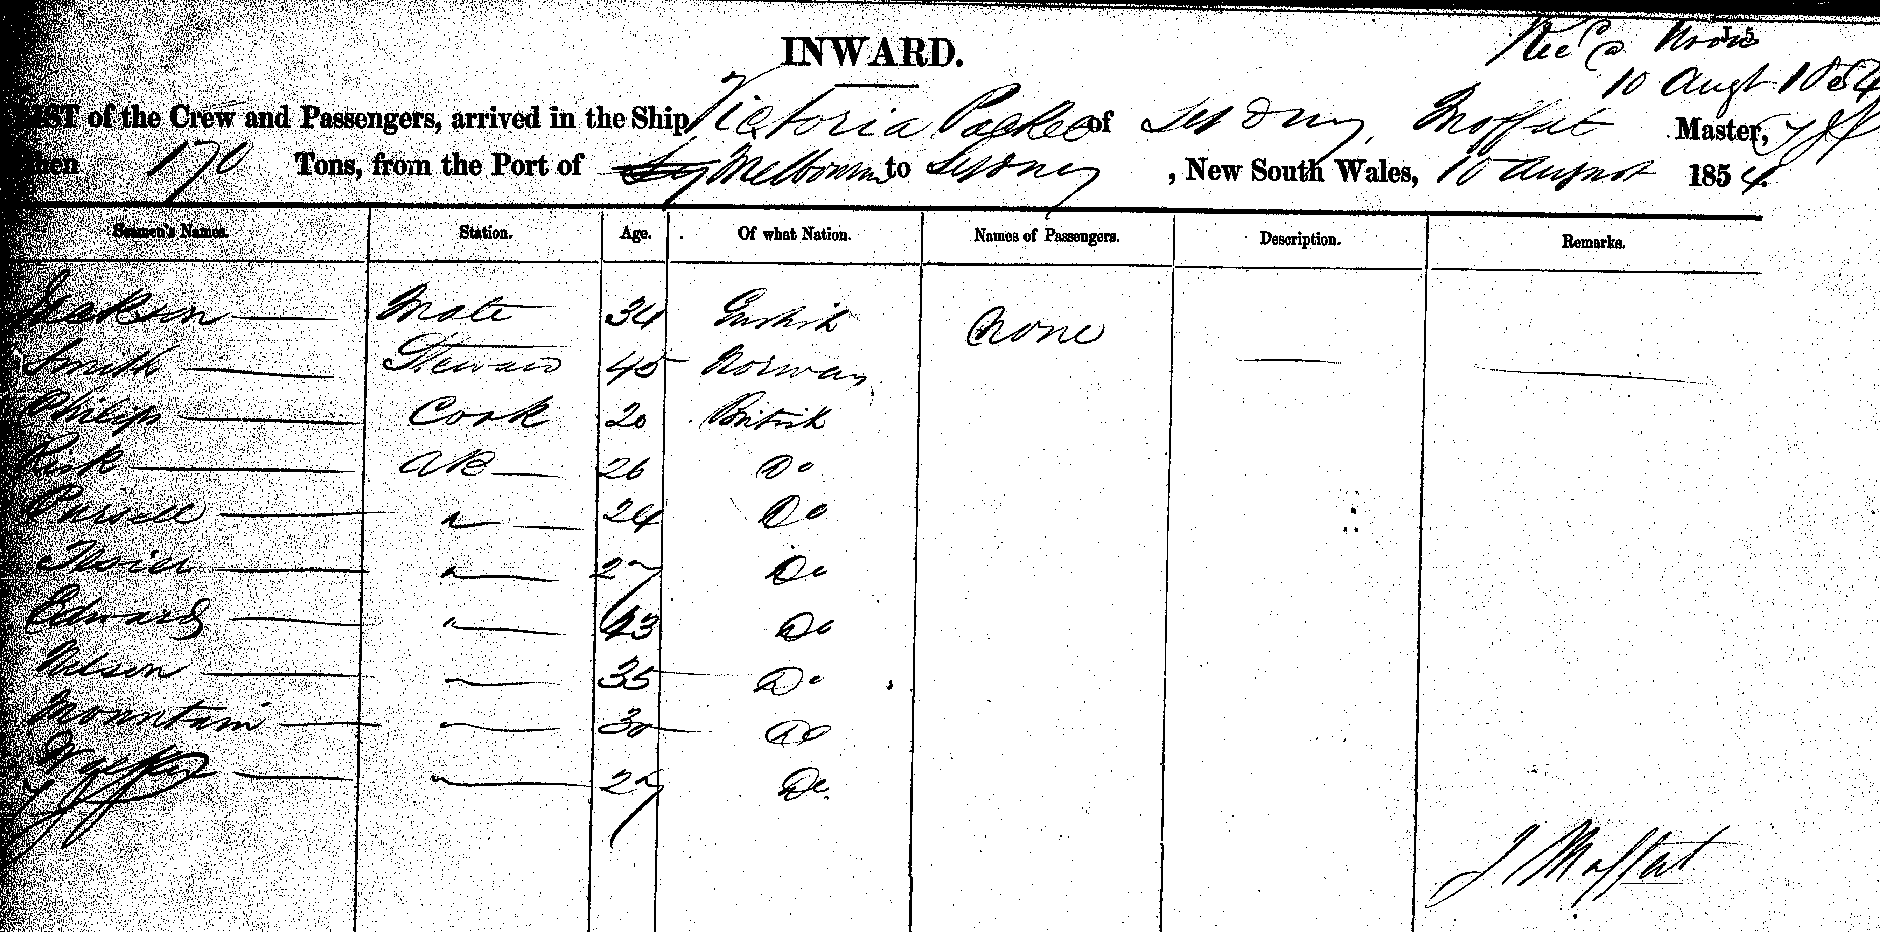 INWARD.
Recd Noon
10 Augt 1854
LIST of the Crew and Passengers, arrived in the Ship Victoria Packet of Sydney, Moffat Master,
170 Tons, from the Port of Melbourne to Sydney, New South Wales, 10 August 1854
Seamen's Names. Station. Age. Of what Nation. Names of Passengers. Description. Remarks.
Jackson Mate 34 British None
Smith Steward 45 Norway
Philips Cook 20 British
AB 26 Do
24 Do
27 Do
Edwards 43 Do
Nelson 35 Do
Mountain 30 Do
27 Do
J Moffat